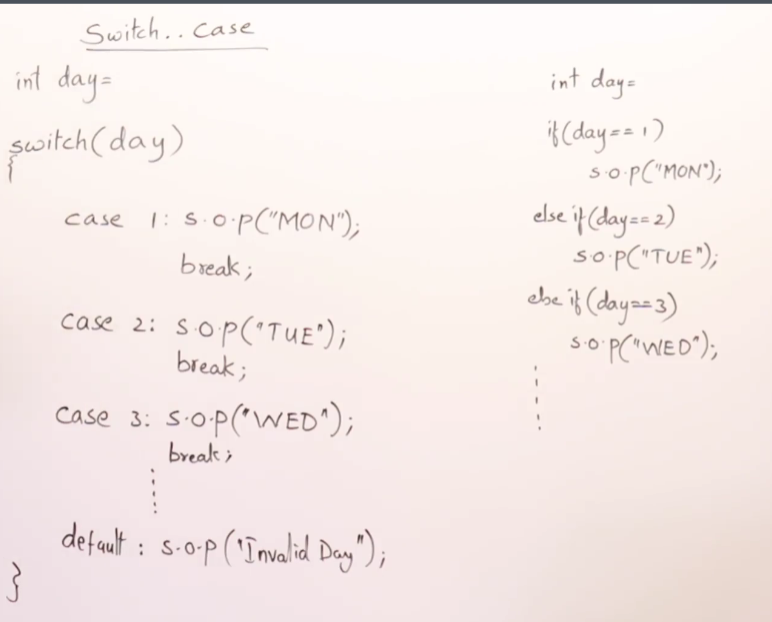 Switch.. case
int day=
switch(day)
{
case 1: s.o.p("MON");
break;
case 2: s.o.p("TUE");
break;
case 3: s.o.p("WED");
break;
default: s.o.p("Invalid Day");
}
int day=
if(day==1)
s.o.p("MON");
else if(day==2)
s.o.p("TUE");
else if(day==3)
s.o.p("WED");